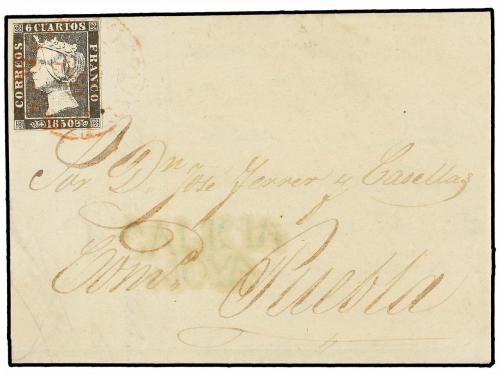 6 CUARTOS
CORREOS
FRANCO
1850
Sor. Dn. Jose Ferrer y Casellas
Comº. Puebla